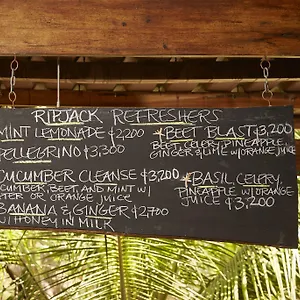 RIPJACK REFRESHERS
MINT LEMONADE ₡2,200
PELLEGRINO ₡3,300
CUCUMBER CLEANSE ₡3,200
CUCUMBER, BEET, AND MINT W/
WATER OR ORANGE JUICE
BANANA & GINGER ₡2,700
W/ HONEY IN MILK
*BEET BLAST ₡3,200
BEET, CELERY, PINEAPPLE,
GINGER & LIME W/ORANGE JUICE
*BASIL, CELERY,
PINEAPPLE W/ORANGE
JUICE ₡3,200